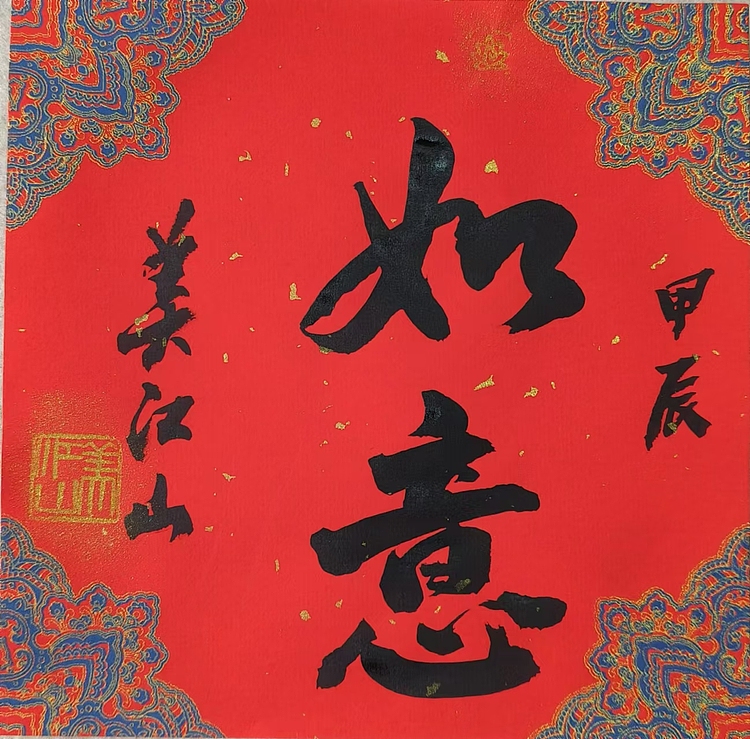 甲辰
如意
美江山